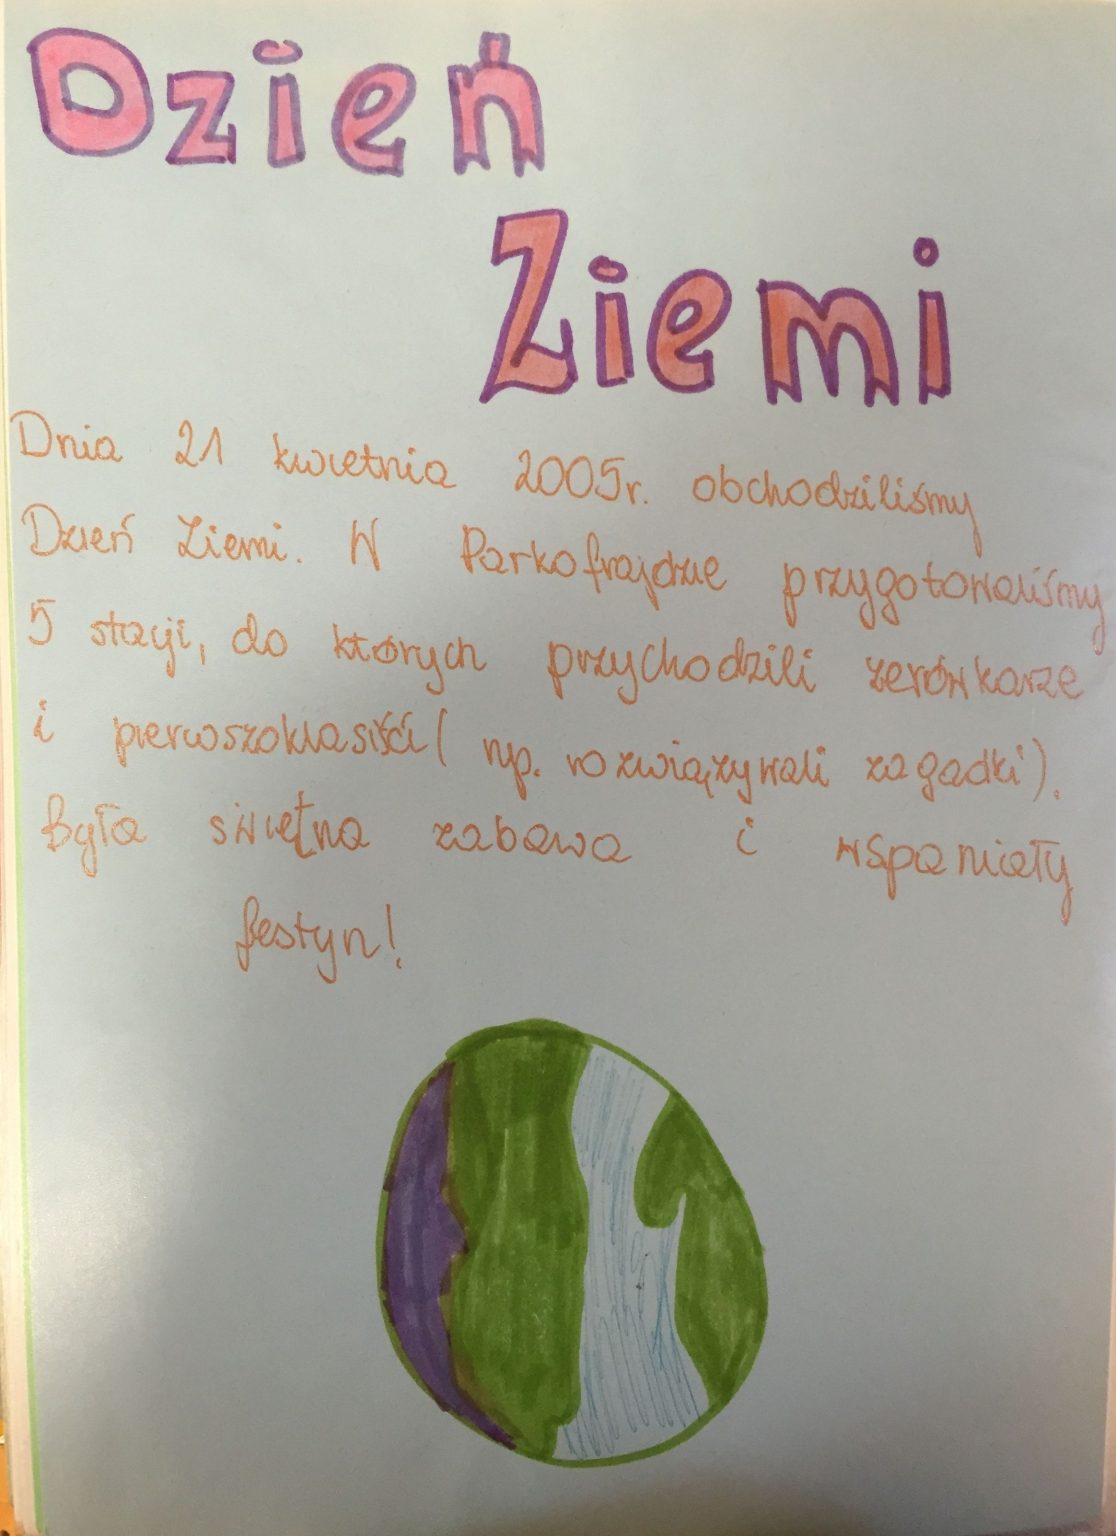 Dzień
Ziemi
Dnia 21 kwietnia 2005r. obchodziliśmy
Dzień Ziemi. W Parkofrajdzie przygotowaliśmy
5 stacji, do których przychodzili zerówkarze
i pierwszoklasiści ( np. rozwiązywali zagadki).
Była świetna zabawa i wspaniały
festyn!